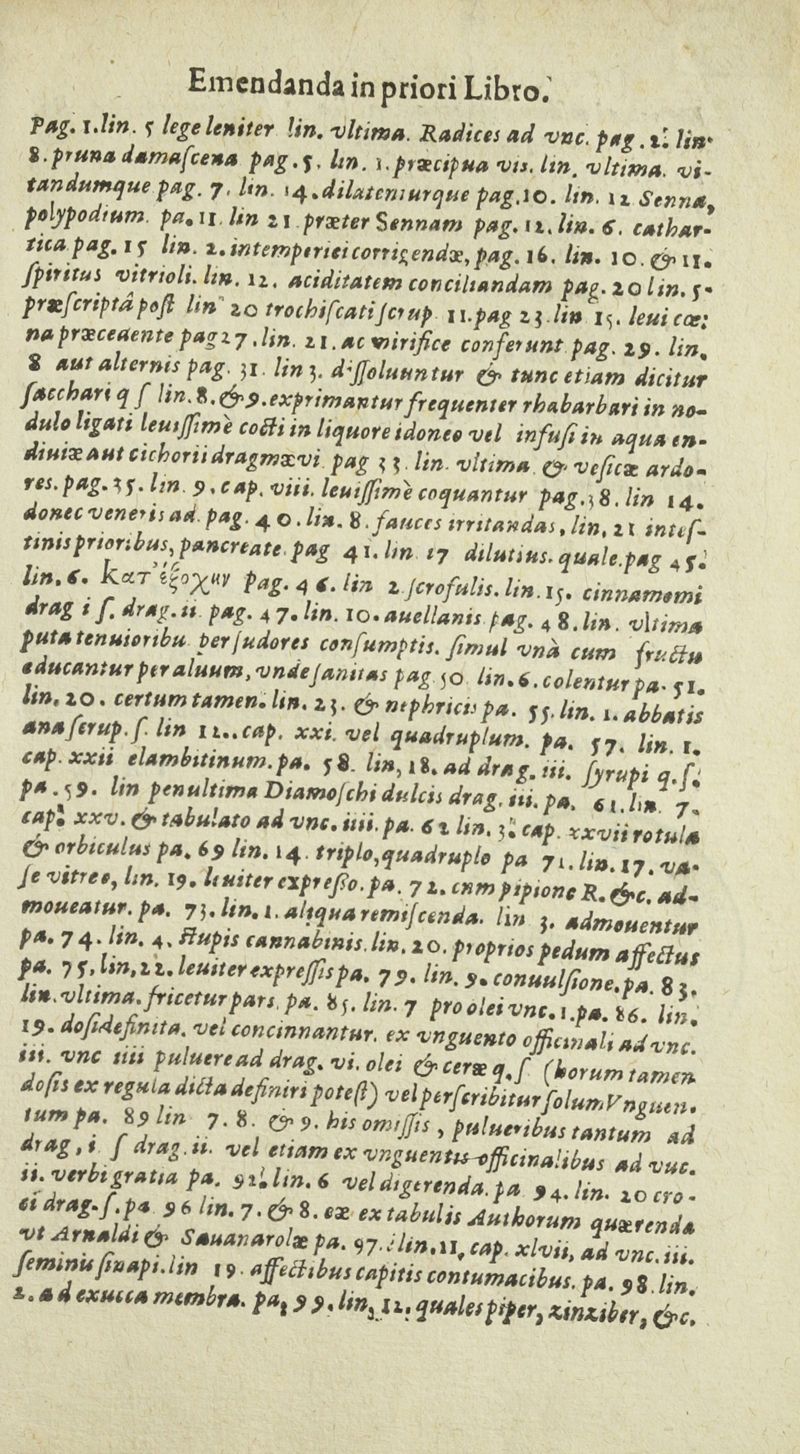 Emendanda in priori Libro.
Pag. 1.lin. 5 lege leniter lin. vltima. Radices ad vnc. pag. 2. lin.
8. pruna damaſcena pag. 5. lin. 1. præcipua vis. lin. vltima. vi-
tandumque pag. 7. lin. 14. dilatenturque pag.10. lin. 12 Senna,
polypodium. pa. 11. lin 21 præter Sennam pag. 12. lin. 6. cathar-
tica pag. 15 lin. 2. intemperiei corrigendæ, pag. 16. lin. 10. & 11.
ſpiritus vitrioli. lin. 12. aciditatem conciliandam pag. 20 lin. 5.
præſcripta poſt lin 20 trochiſcati ſcrup 11. pag 23 lin 15. leui cœ:
na præcedente pag 27. lin. 21. ac mirifice conferunt pag. 29. lin.
8 aut alternis pag. 31. lin 3. diſſoluuntur & tunc etiam dicitur
ſacchari q ſ lin. 8. & 9. exprimantur frequenter rhabarbari in no-
dulo ligati leuiſſime cocti in liquore idoneo vel infuſi in aqua en-
diuiæ aut cichorii dragmæ vi pag 33 lin. vltima & veſicæ ardo-
res. pag. 35. lin. 9. cap. viii. leuiſſimè coquantur pag. 38. lin 14.
donec veneris ad. pag. 40. lin. 8. fauces irritandas, lin, 21 inteſ-
tinis prioribus, pancreate. pag 41. lin 17 dilutius. quale. pag 45.
lin. 6. κατ᾽ ἐξοχὴν pag. 46. lin 2 ſcrofulis. lin. 15. cinnamomi
drag 1 ſ. drag. ii. pag. 47. lin. 10. auellanis pag. 48. lin. vltima
puta tenuioribu per ſudores conſumptis. ſimul vnà cum fructu
educantur per aluum, vnde ſanitas pag 50 lin. 6. colentur pa. 51.
lin. 20. certum tamen. lin. 23. & nephricis pa. 55. lin. 1. abbatis
ana ſcrup. ſ. lin 12.. cap. xxi. vel quadruplum. pa. 57. lin. 1.
cap. xxii elambitinum. pa. 58. lin, 18. ad drag. iii. ſyrupi q. ſ.
pa. 59. lin penultima Diamoſchi dulcis drag. iii. pa. 61. lin 7.
cap. xxv. & tabulato ad vnc. iiii. pa. 62 lin. 3. cap. xxvii rotula
& orbiculus pa. 69 lin. 14. triplo, quadruplo pa 71. lin. 17. va-
ſe vitreo, lin. 19. leuiter expreſſo. pa. 72. cum pipione R. &c. ad-
moueatur. pa. 73. lin. 1. aliqua remiſcenda. lin 3. admouentur
pa. 74. lin. 4. ſtupis cannabinis. lin. 20. proprios pedum affectus
pa. 75. lin, 22. leuiter expreſſis pa. 79. lin. 9. conuulſione. pa. 83.
lin. vltima. fricetur pars. pa. 85. lin. 7 pro olei vnc. 1. pa. 86. lin.
19. doſi definita. vel concinnantur. ex vnguento officinali ad vnc.
iii. vnc iiii puluere ad drag. vi. olei & ceræ q. ſ (horum tamen
doſis ex regula dicta definiri poteſt) vel perſcribitur ſolum Vnguen-
tum pa. 89 lin 7. 8. & 9. his omiſſis, pulueribus tantum ad
drag, 1 ſ drag. ii. vel etiam ex vnguentis officinalibus ad vnc.
ii. verbi gratia pa. 92. lin. 6 vel digerenda. pa 94. lin. 20 cro-
ci drag. ſ. pa 96 lin. 7. & 8. ex ex tabulis Authorum quærenda
vt Arnaldi & Sauanarolæ pa. 97. lin. 11, cap. xlvii, ad vnc. iii.
ſeminis ſinapi. lin 19. affectibus capitis contumacibus. pa. 98. lin.
2. ad exucca membra. pa, 99. lin, 12. quales piper, zinziber, &c.